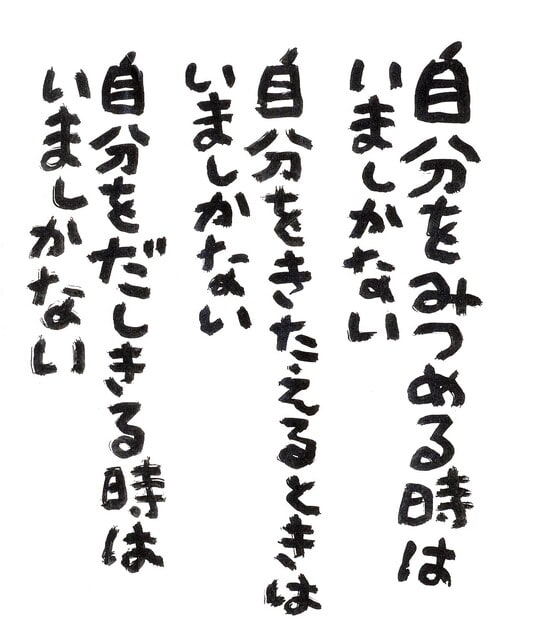 自分をみつめる時は
いましかない
自分をきたえるときは
いましかない
自分をだしきる時は
いましかない